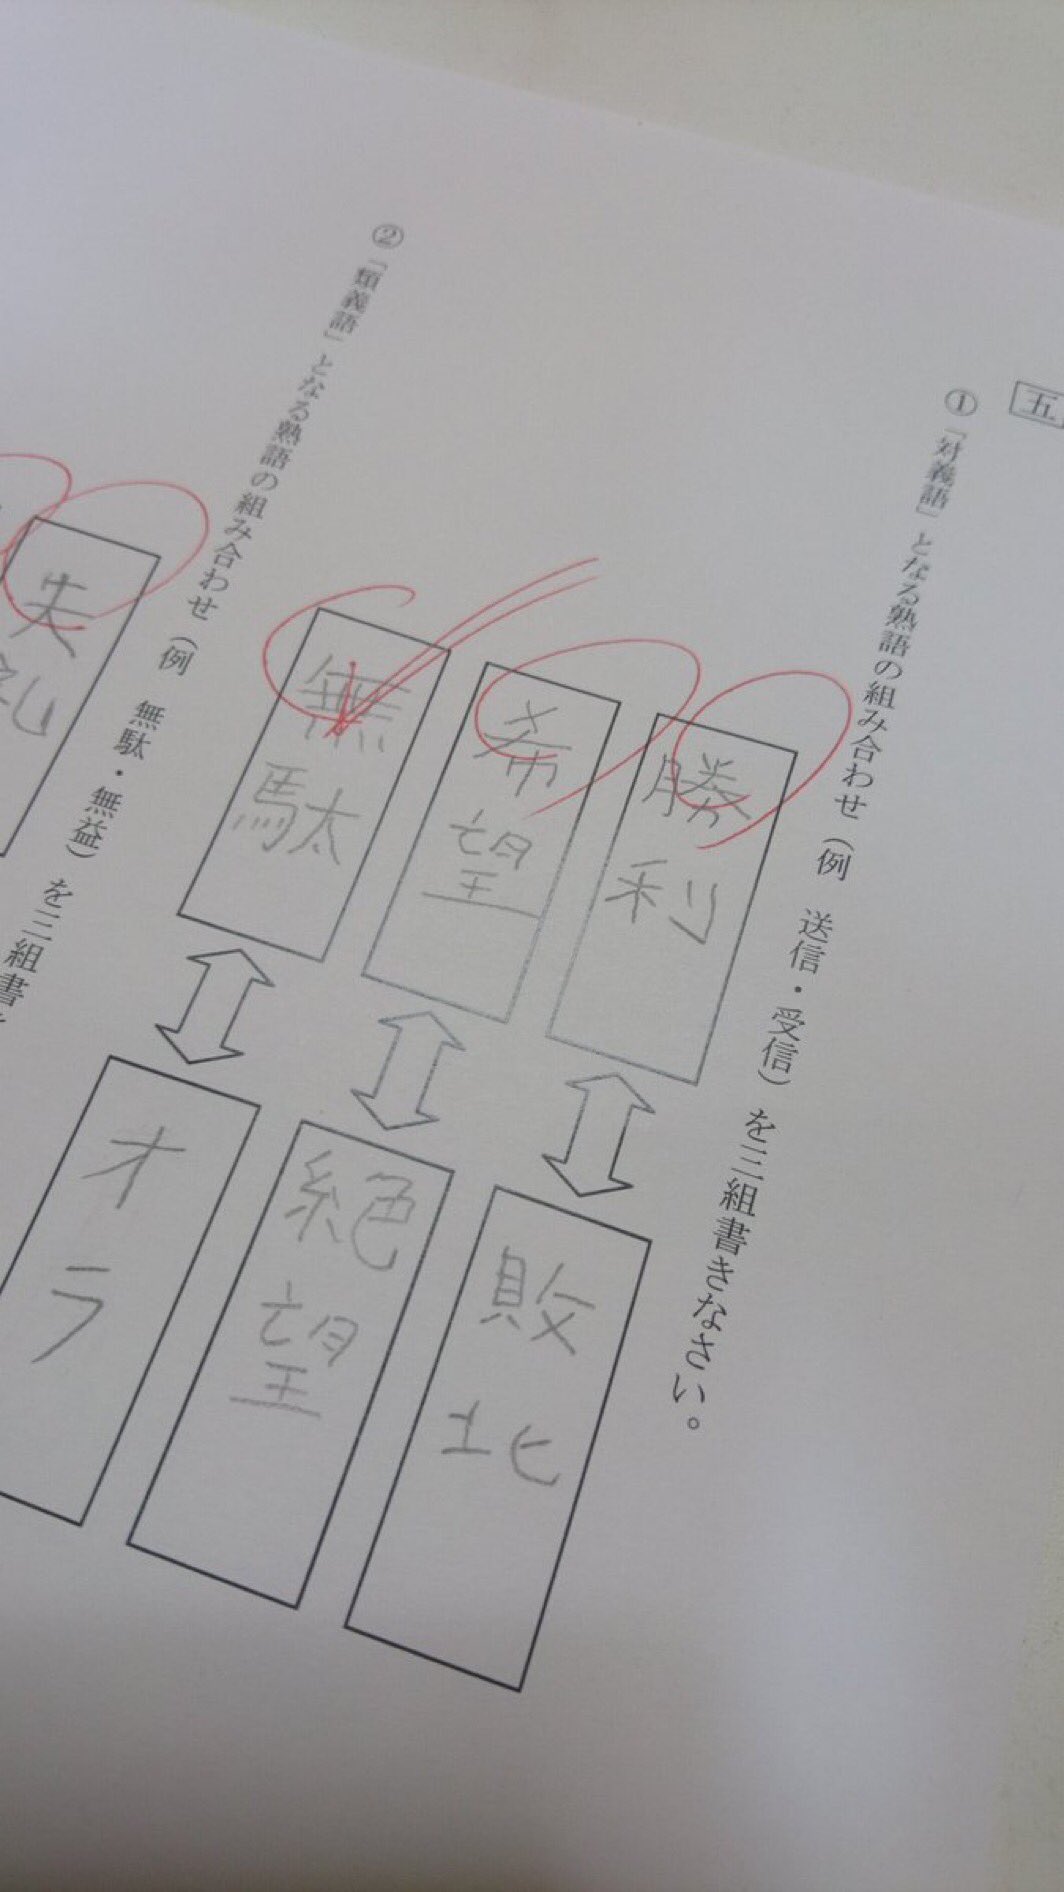 五
①「対義語」となる熟語の組み合わせ（例　送信・受信）を三組書きなさい。
勝利
敗北
希望
絶望
無駄
オラ
②「類義語」となる熟語の組み合わせ（例　無駄・無益）を三組書
失礼